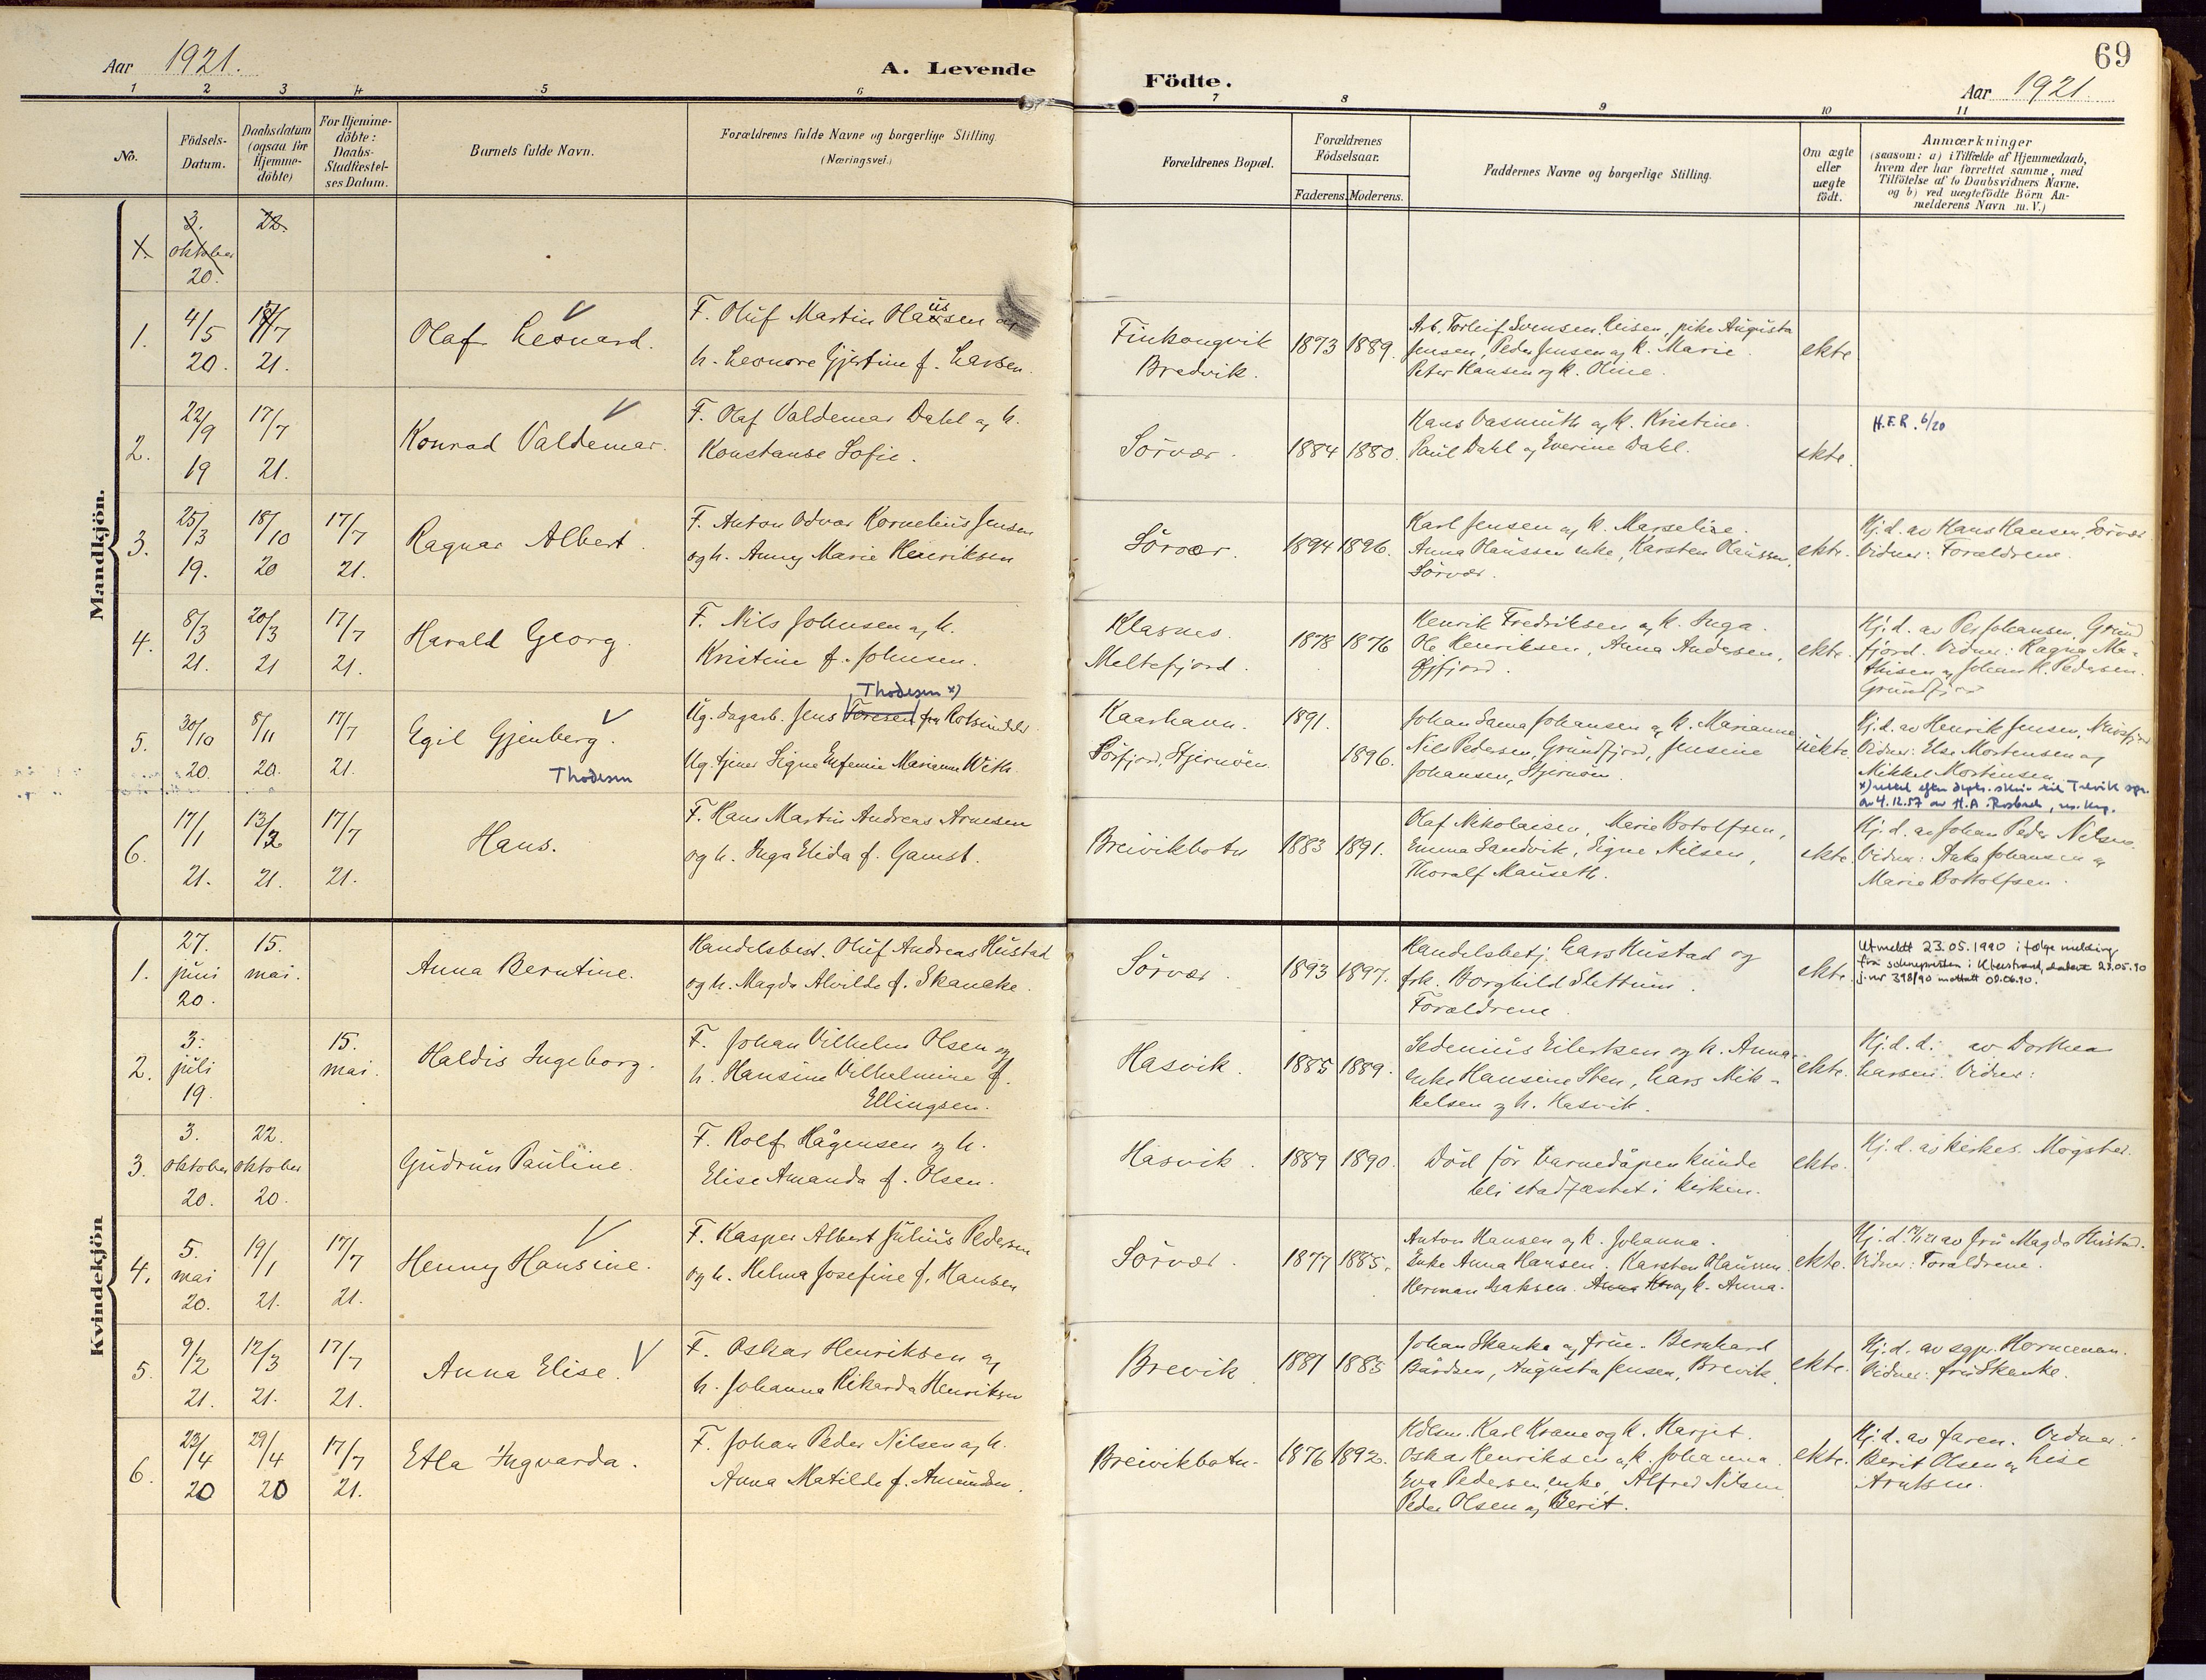 Aar 1921.
A. Levende
Födte.
69
Aar 1921.
1 2 3 4 5 6 7 8 9 10 11
No.
Födsels-
Datum.
Daabsdatum
(ogsaa for
Hjemme-
döbte)
For Hjemme-
döbte:
Daabs-
Stadfæstel-
ses Datum.
Barnets fulde Navn.
Forældrenes fulde Navne og borgerlige Stilling.
(Næringsvei.)
Forældrenes Bopæl.
Forældrenes
Födselsaar.
Faderens. Moderens.
Faddernes Navne og borgerlige Stilling.
Om ægte
eller
uægte
födt.
Anmærkninger
(saasom: a) i Tilfælde af Hjemmedaab,
hvem der har forrettet samme, med
Tilföielse af to Daabsvidners Navne.
og b) ved uægtefödte Börn An-
melderens Navn m. V.)
Mandkjön.
1. 3. oktober 20. 22.
1. 4/5 20. 17/7 21.
Olaf Leonard.
F. Oluf Martin Olaussen og
h. Leonore Gjertine f. Larsen.
Finkongvik
Bredvik.
1893 1889.
Arb. Torleif Svensen, pike Augusta
Jensen, Peder Jensen og k. Marie.
Peter Hansen og k. Oline.
ekte
2. 22/9 19 17/7 21.
Konrad Valdemar.
F. Olaf Valdemar Dahl og h.
Konstanse Sofie.
Sörvær.
1884 1880.
Hans Vasmuth og k. Kristine.
Paul Dahl og Everine Dahl.
ekte.
H.F.R. 6/20
3. 25/3 19. 18/10 20 17/7 21.
Ragnar Albert.
F. Anton Odvar Kornelius Jensen
og h. Anny Marie Henriksen
Sörvær.
1894 1896.
Karl Jensen og k. Marselise.
Anna Olaussen enke, Karsten Olaussen,
Sörvær.
ekte.
Hj.d. av Hans Hansen, Sörvær
Vidner: Foreldrene.
4. 8/3 21. 20/3 21 17/7 21.
Harald Georg.
F. Nils Johnsen og h.
Kristine f. Johnsen.
Klasnes.
Meltefjord.
1878 1876
Henrik Fredriksen og k. Inga.
Ole Henriksen, Anna Andersen,
Öjfjord.
ekte.
Hj.d. av Per Johansen, Grund
fjord. Vidner: Ragna Ma-
thisen og Johan K. Pedersen.
Grundfjord
5. 30/10 20. 8/11 20. 17/7 21.
Egil Gjenberg.
Thodesen
Thodesen x)
Ug. dagarb. Jens Toresen fra Rotsundelv.
Ug. tjener Signe Eufemie Marianne With.
Kaarhavn.
Sörfjord, Stjernöen.
1891.
1896.
Johan Samu Johansen og k. Marianne
Nils Pedersen, Grundfjord, Jensine
Johansen, Stjernöen.
uekte.
Hj.d. av Henrik Jensen,
Vidner: Else Mortensen og
Mikkel Mortensen
6. 17/1 21. 13/2 21. 17/7 21.
Hans.
F. Hans Martin Andreas Arnesen
og h. Inga Elida f. Gamst.
Breivikbotn
1883 1891.
Olaf Nikolaisen, Marie Botolfsen,
Emma Sandvik, Signe Nilsen,
Thoralf Mauseth.
ekte
Hj.d. av Johan Peder Nilsen.
Vidner: Aaka Johansen og
Marie Bottolfsen.
Kvindekjön
1. 27. juni 20. 15. mai.
Anna Berntine.
Handelsbest. Oluf Andreas Hustad
og h. Magda Alvilde f. Skancke.
Sörvær.
1893 1897.
Handelsbetj. Lars Hustad og
frk. Borghild Slettum.
Foreldrene.
ekte.
Utmeldt 23.05.1990 i følge melding
j.nr 398/90 mottatt 08.06.90.
2. 3. juli 19. 15. mai.
Haldis Ingeborg.
F. Johan Vilhelm Olsen og
h. Hansine Vilhelmine f.
Ellingsen.
Hasvik.
1885 1889.
Sedenius Eilertsen og h. Anna.
enke Hansine Sten, Lars Mik-
kelsen og h. Hasvik.
ekte.
Hj.d.d. av Dorthea
Larsen. Vidner:
3. 3. oktober 20. 22. oktober 20.
Gudrun Pauline.
F. Rolf Hågensen og h.
Elise Amanda f. Olsen.
Hasvik.
1889 1890.
Död för barnedåpen kunde
bli stadfæstet i kirken.
ekte.
Hj.d. av kirkes. Møgster.
4. 5. mai 20. 19/1 21. 17/7 21.
Henny Hansine.
F. Kasper Albert Julius Pedersen
og h. Helma Josefine f. Hansen
Sörvær.
1877 1885.
Anton Hansen og k. Johanna.
Enke Anna Hansen. Karsten Olaussen.
Herman Isaksen. og k. Anna.
ekte.
Hj.d. 19/1 21 av fru Magda Hustad.
Vidner: Foreldrene.
5. 9/2 21. 12/3 21. 17/7 21.
Anna Elise.
F. Oskar Henriksen og
h. Johanna Rikarda Henriksen
Brevik
1887 1885
Johan Skanke og frue. Bernhard
Bårdsen, Augusta Jensen, Brevik.
ekte.
Hj.d. av sgpr. Hornemann.
Vidner: fru Skanke.
6. 23/4 20 29/4 20 17/7 21.
Etla Ingvarda.
F. Johan Peder Nilsen og h.
Anna Matilde f. Amundsen.
Breivikbotn.
1876 1892.
Hdlsm. Karl Krane og k. Margit.
Oskar Henriksen og k. Johanna.
Eva Pedersen, enke, Alfred Nilsen
Peder Olsen og Berit.
ekte.
Hj.d. av faren. Vidner:
Berit Olsen og Lise
Arntsen.